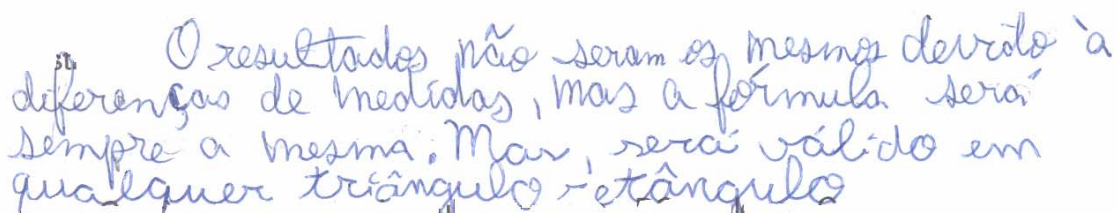 O resultados não seram os mesmos devido à
diferenças de medidas, mas a fórmula será
sempre a mesma. Mas, será válido em
qualquer triângulo retângulo